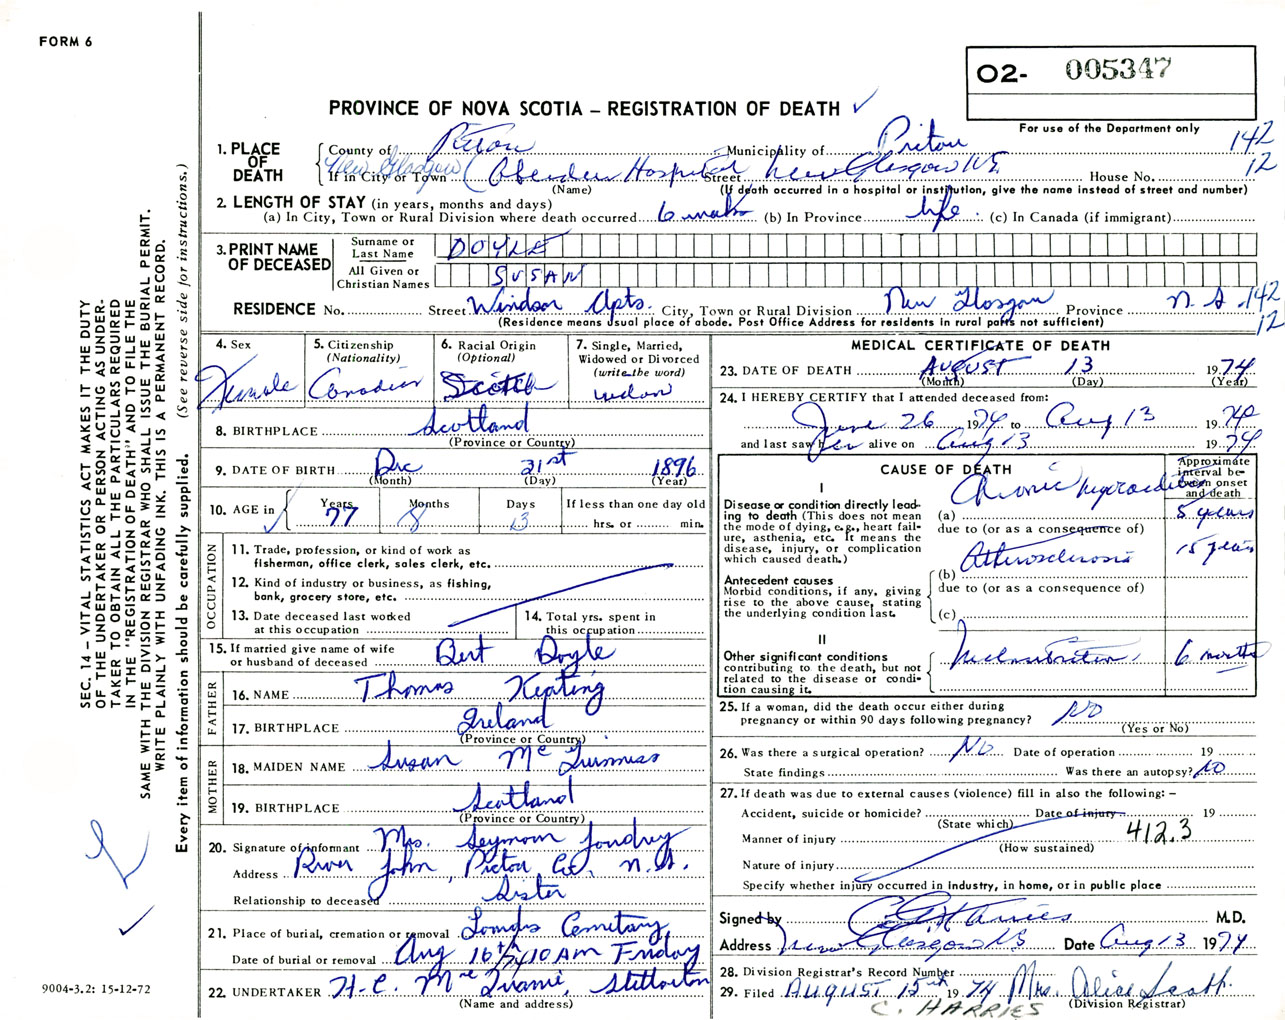 FORM 6
O2- 005347
PROVINCE OF NOVA SCOTIA – REGISTRATION OF DEATH ✓
For use of the Department only
142
12
1. PLACE OF DEATH
County of Pictou Municipality of Pictou
New Glasgow
If in City or Town (Aberdeen Hospital Street New Glasgow NS House No.
(Name) (If death occurred in a hospital or institution, give the name instead of street and number)
2. LENGTH OF STAY (in years, months and days)
(a) In City, Town or Rural Division where death occurred 6 (b) In Province life (c) In Canada (if immigrant)
3. PRINT NAME OF DECEASED
Surname or Last Name DOYLE
All Given or Christian Names SUSAN
RESIDENCE No. Street Windsor Apts. City, Town or Rural Division New Glasgow Province N.S. 142
12
(Residence means usual place of abode. Post Office Address for residents in rural parts not sufficient)
4. Sex Female
5. Citizenship (Nationality) Canadian
6. Racial Origin (Optional) Scotch
7. Single, Married, Widowed or Divorced (write the word) widow
8. BIRTHPLACE Scotland
(Province or Country)
9. DATE OF BIRTH Dec 21st 1896
(Month) (Day) (Year)
10. AGE in Years 77 Months 8 Days 13 If less than one day old
hrs. or min.
OCCUPATION
11. Trade, profession, or kind of work as fisherman, office clerk, sales clerk, etc.
12. Kind of industry or business, as fishing, bank, grocery store, etc.
13. Date deceased last worked at this occupation
14. Total yrs. spent in this occupation
15. If married give name of wife or husband of deceased Bert Doyle
FATHER
16. NAME Thomas Keating
17. BIRTHPLACE Ireland
(Province or Country)
MOTHER
18. MAIDEN NAME Susan McGuinniss
19. BIRTHPLACE Scotland
(Province or Country)
20. Signature of informant Mrs. Seymour Joudrey
Address River John, Pictou Co, N.S.
Relationship to deceased Sister
21. Place of burial, cremation or removal Cemetary
Date of burial or removal Aug 16th/74 10 AM Friday
22. UNDERTAKER H.C. Stellarton
(Name and address)
MEDICAL CERTIFICATE OF DEATH
23. DATE OF DEATH AUGUST 13 1974
(Month) (Day) (Year)
24. I HEREBY CERTIFY that I attended deceased from:
June 26 1974 to Aug 13 1974
and last saw her alive on Aug 13 1974
CAUSE OF DEATH
Approximate interval between onset and death
I
Disease or condition directly leading to death (This does not mean the mode of dying, e.g., heart failure, asthenia, etc. It means the disease, injury, or complication which caused death.)
(a) Chronic Myocarditis 5 years
due to (or as a consequence of)
Antecedent causes
Morbid conditions, if any, giving rise to the above cause, stating the underlying condition last.
(b) Atherosclerosis 15 years
due to (or as a consequence of)
(c)
II
Other significant conditions contributing to the death, but not related to the disease or condition causing it.
Malnutrition 6 months
25. If a woman, did the death occur either during pregnancy or within 90 days following pregnancy? NO
(Yes or No)
26. Was there a surgical operation? No Date of operation 19
State findings Was there an autopsy? NO
27. If death was due to external causes (violence) fill in also the following: –
Accident, suicide or homicide? Date of injury 19
(State which)
Manner of injury 412.3
(How sustained)
Nature of injury
Specify whether injury occurred in industry, in home, or in public place
Signed by C. Harries M.D.
Address New Glasgow NS Date Aug 13 1974
28. Division Registrar's Record Number
29. Filed AUGUST 15th 1974 Mrs. Alice Scott
(Division Registrar)
C. HARRIES
SEC. 14 – VITAL STATISTICS ACT MAKES IT THE DUTY
OF THE UNDERTAKER OR PERSON ACTING AS UNDER-
TAKER TO OBTAIN ALL THE PARTICULARS REQUIRED
IN THE "REGISTRATION OF DEATH" AND TO FILE THE
SAME WITH THE DIVISION REGISTRAR WHO SHALL ISSUE THE BURIAL PERMIT.
WRITE PLAINLY WITH UNFADING INK. THIS IS A PERMANENT RECORD.
Every item of information should be carefully supplied. (See reverse side for instructions.)
9004-3.2: 15-12-72